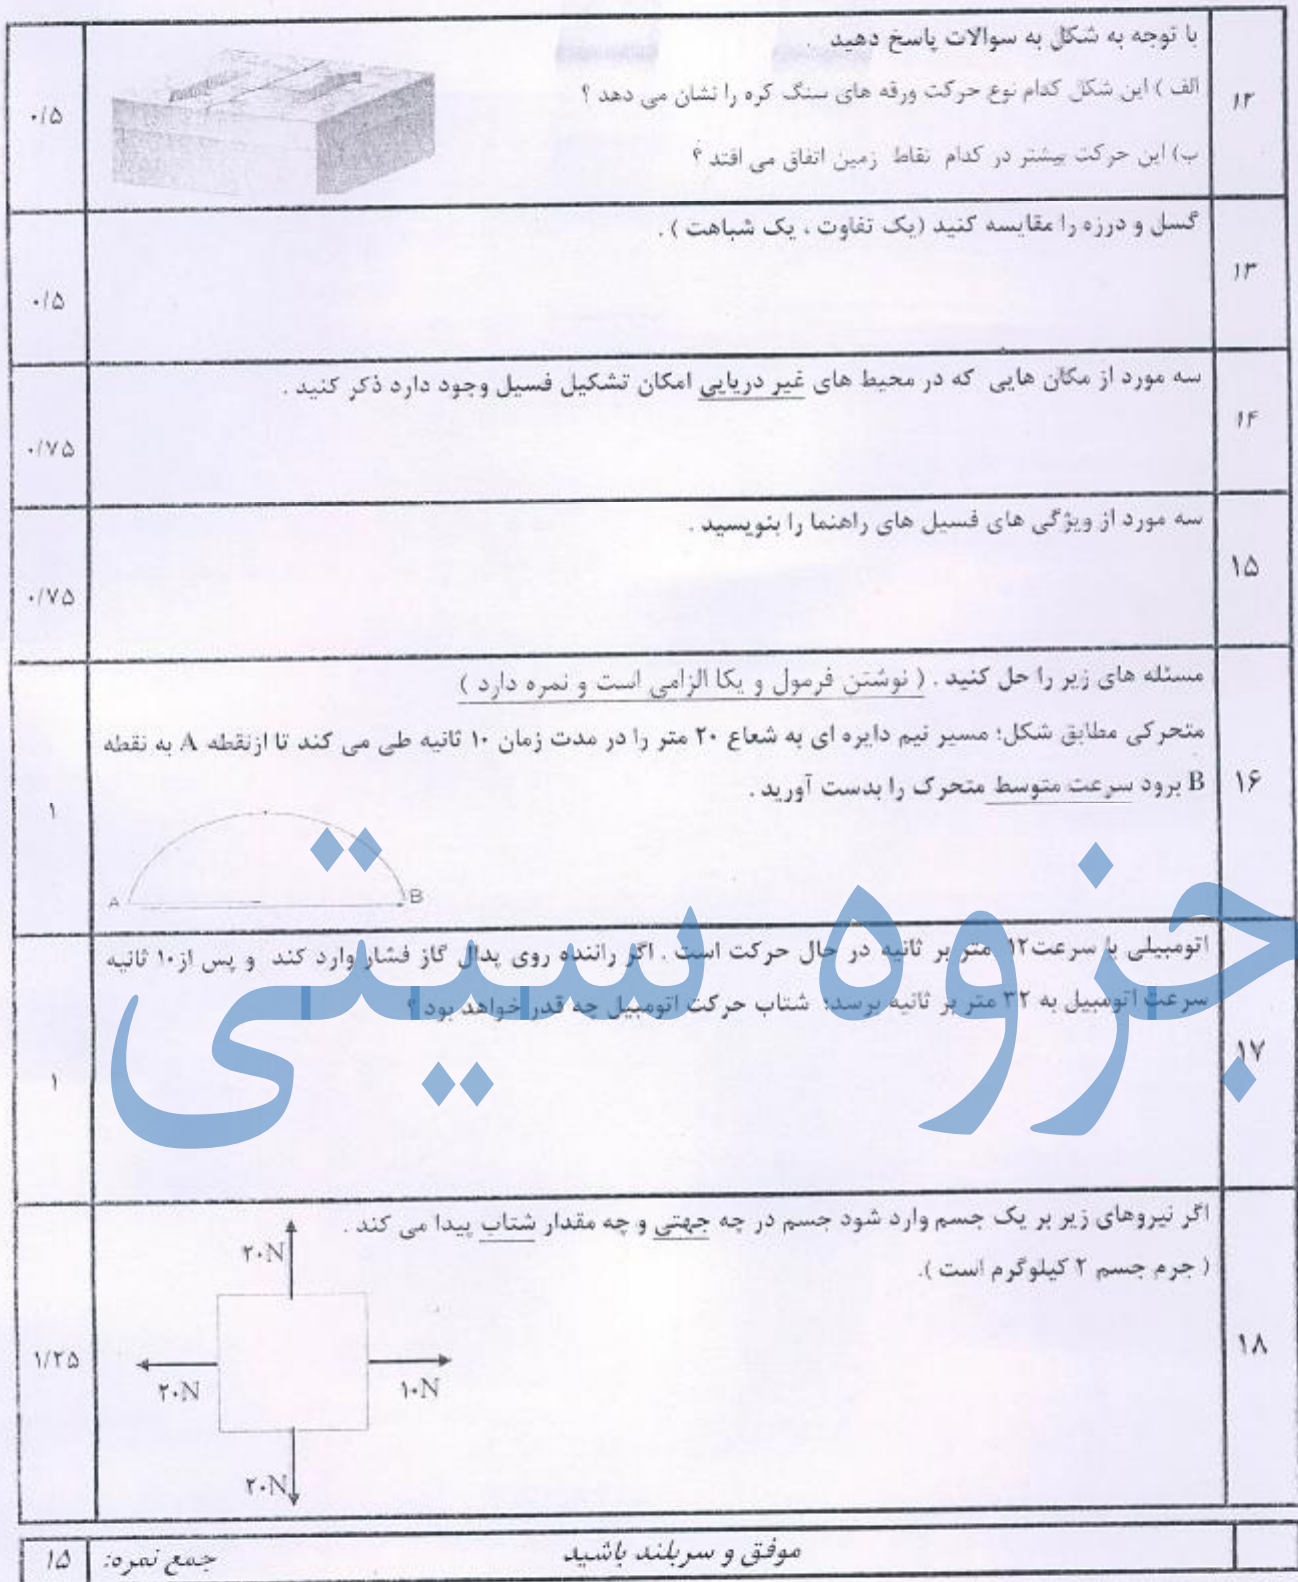 ۱۲
با توجه به شکل به سوالات پاسخ دهید .
الف ) این شکل کدام نوع حرکت ورقه های سنگ کره را نشان می دهد ؟
ب) این حرکت بیشتر در کدام نقاط زمین اتفاق می افتد ؟
۰/۵
۱۳
گسل و درزه را مقایسه کنید (یک تفاوت ، یک شباهت ) .
۰/۵
۱۴
سه مورد از مکان هایی که در محیط های غیر دریایی امکان تشکیل فسیل وجود دارد ذکر کنید .
۰/۷۵
۱۵
سه مورد از ویژگی های فسیل های راهنما را بنویسید .
۰/۷۵
۱۶
مسئله های زیر را حل کنید . ( نوشتن فرمول و یکا الزامی است و نمره دارد )
متحرکی مطابق شکل؛ مسیر نیم دایره ای به شعاع ۲۰ متر را در مدت زمان ۱۰ ثانیه طی می کند تا ازنقطه A به نقطه
B برود سرعت متوسط متحرک را بدست آورید .
A
B
۱
۱۷
اتومبیلی با سرعت۱۲ متر بر ثانیه در حال حرکت است . اگر راننده روی پدال گاز فشار وارد کند و پس از۱۰ ثانیه
سرعت اتومبیل به ۳۲ متر بر ثانیه برسد؛ شتاب حرکت اتومبیل چه قدر خواهد بود ؟
۱
جزوه سیتی
۱۸
اگر نیروهای زیر بر یک جسم وارد شود جسم در چه جهتی و چه مقدار شتاب پیدا می کند .
( جرم جسم ۲ کیلوگرم است ).
۲۰N
۲۰N
۱۰N
۲۰N
۱/۲۵
موفق و سربلند باشید
جمع نمره:
۱۵